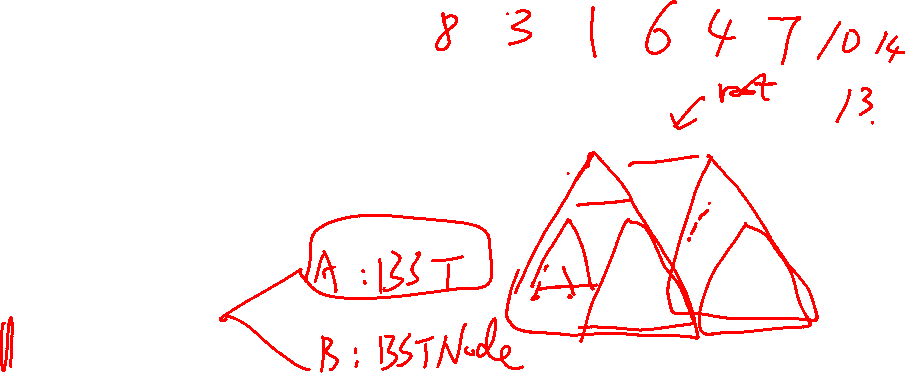 8 3 1 6 4 7 10 14
13.
root
A : BST
B : BSTNode